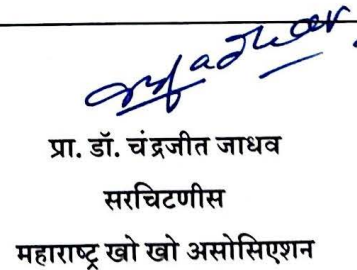 प्रा. डॉ. चंद्रजीत जाधव
सरचिटणीस
महाराष्ट्र खो खो असोसिएशन